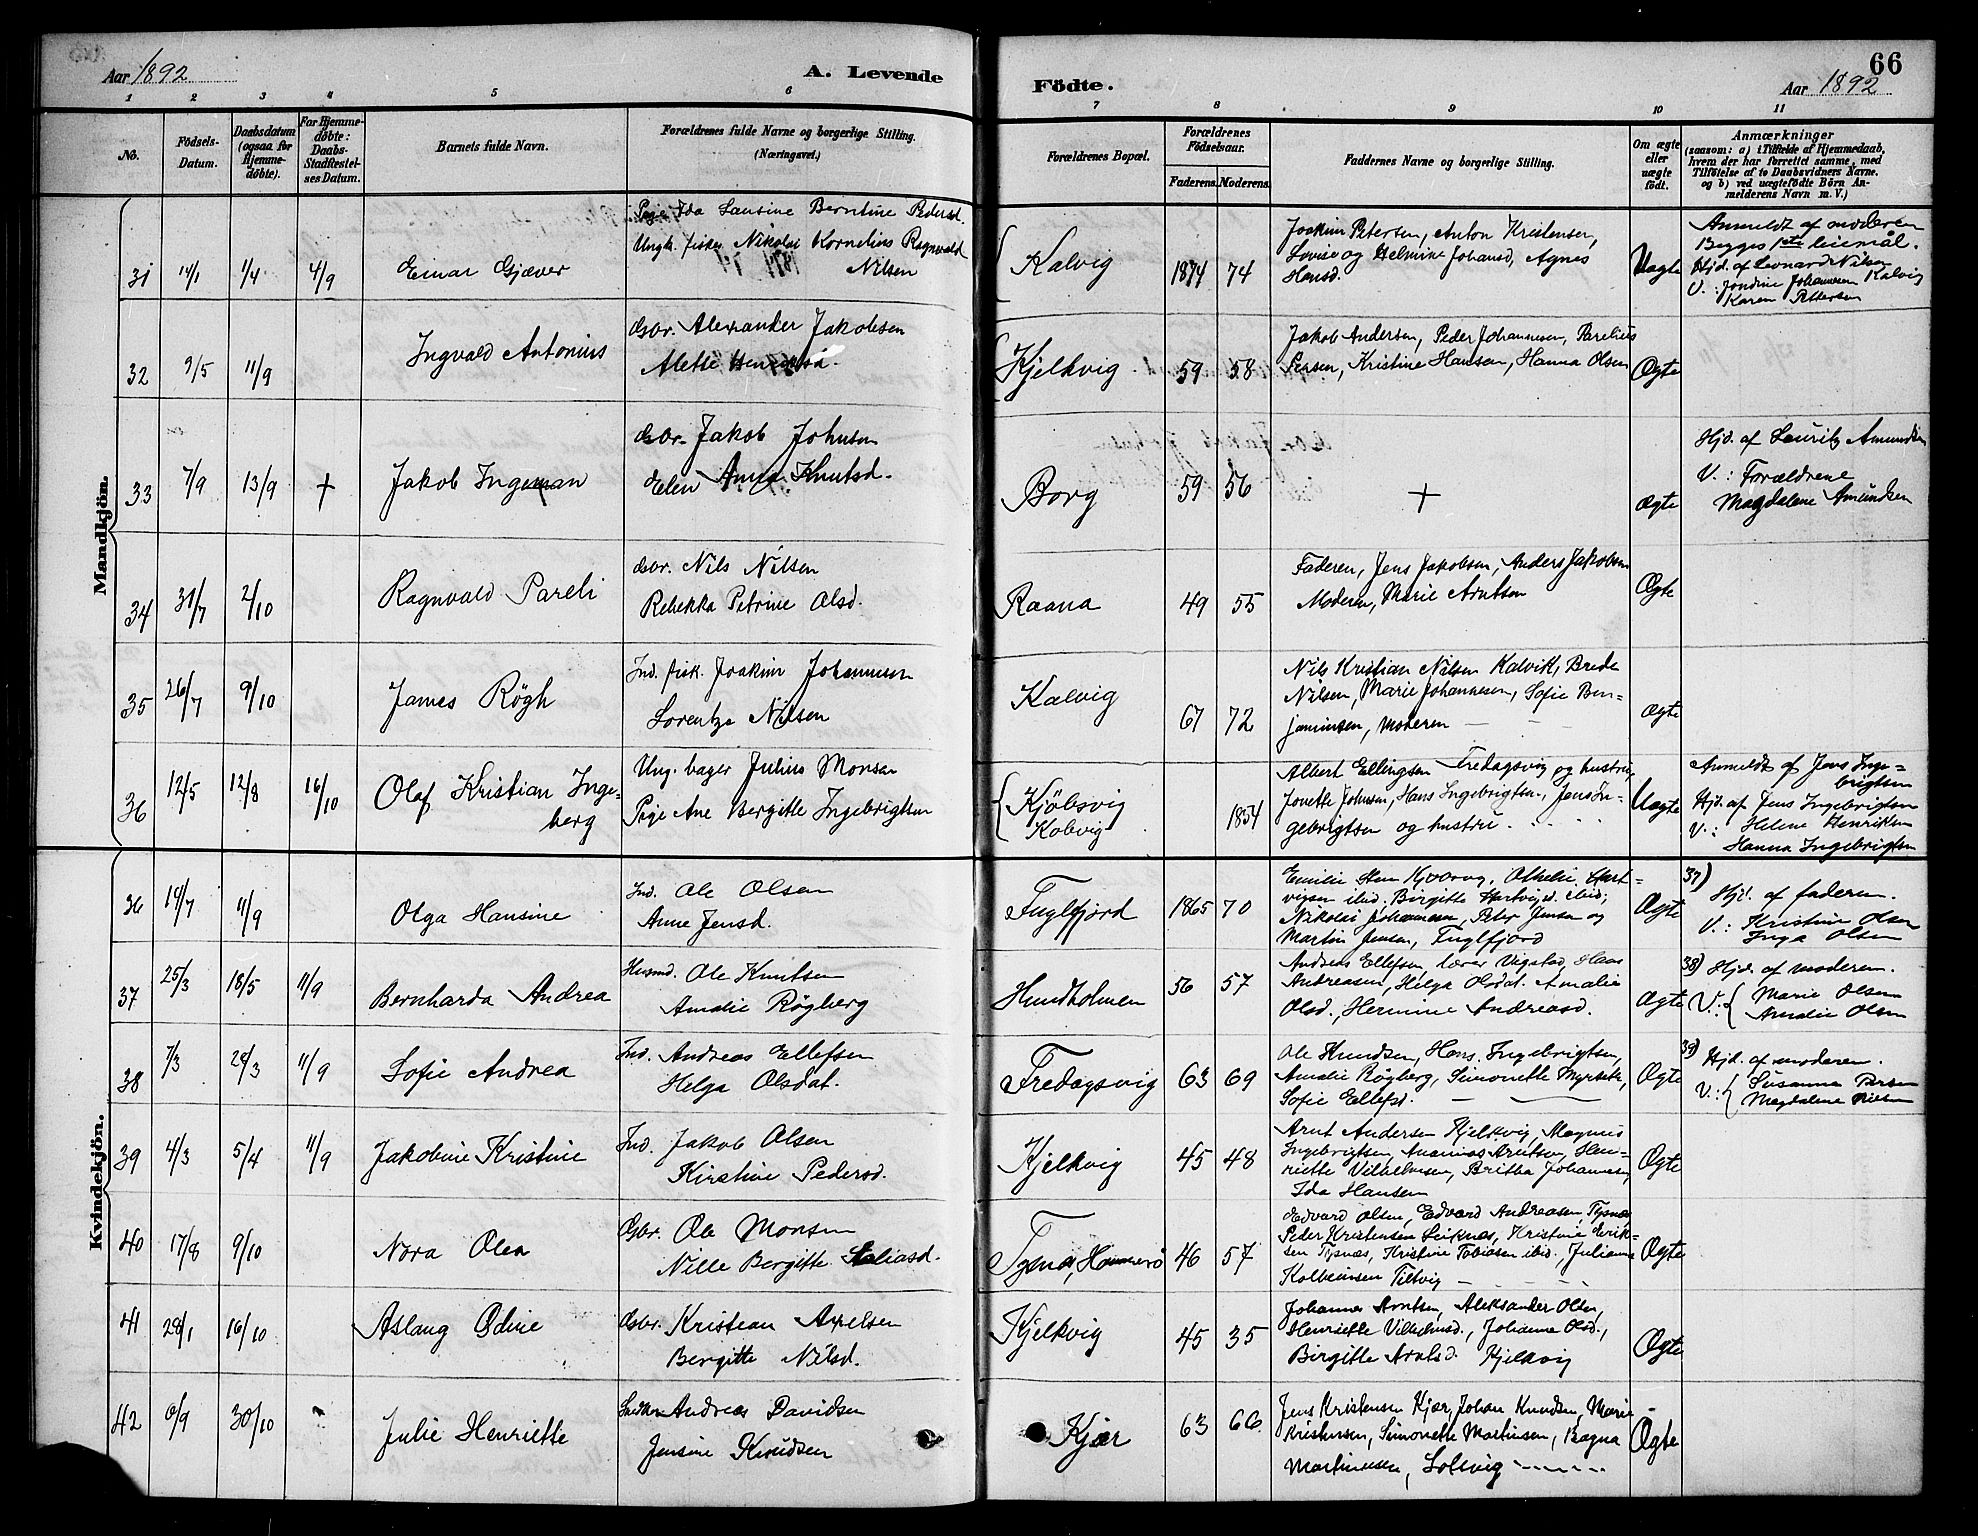 Aar 1892
A. Levende
Födte.
66
Aar 1892
1 2 3 4 5 6 7 8 9 10 11
No.
Födsels-
Datum.
Daabsdatum
(ogsaa for
Hjemme-
döbte).
For Hjemme-
döbte:
Daabs-
Stadfæstel-
ses Datum.
Barnets fulde Navn.
Forældrenes fulde Navne og borgerlige Stilling.
(Næringsvei.)
Forældrenes Bopæl.
Forældrenes
Födselsaar.
Faderens.
Moderens.
Faddernes Navne og borgerlige Stilling.
Om ægte
eller
uægte
födt.
Anmærkninger
(saasom: a) i Tilfælde af Hjemmedaab,
hvem der har forrettet samme, med
Tilföielse af to Daabsvidners Navne.
og b) ved uægtefödte Börn An-
melderens Navn m. V.)
Mandkjön.
31 14/1 1/4 4/9 Einar Gjæver
Pige Ida Lansine Berntine Pedersd.
Ungk. fisker Nikolai Kornelius Ragnvald
Nilsen
Kalvig 1874 74
Joakim Petersen, Anton Kristensen,
Lovise og Helmine Johansd, Agnes
Hansd.
Uægte
Anmeldt af moderen
Begges 1ste leiemål.
Hjd. af Leonard Nilsen
V.: Jondine Johannesen Kalvig
Karen Pettersen
32 9/5 11/9 Ingvald Antonius
Gbr. Alexander Jakobsen
Alette Henriksd.
Kjelkvig. 59 58
Jakob Andersen, Peder Johannesen, Parelius
Persen, Kristine Hansen, Hanna Olsen
Ægte
33 7/9 13/9 + Jakob Ingeman
Gbr. Jakob Johnsen
Elen Anna Knutsd.
Borg 59 56
+
Ægte
Hjd. af Lauritz Amundsen
V.: Forældrene
Magdalene Amundsen
34 31/7 2/10 Ragnvald Pareli
Gbr. Nils Nilsen
Rebekka Petrine Olsd.
Raana 49 55
Faderen, Jens Jakobsen, Anders Jakobsen
Moderen, Marie Arntsen
Ægte
35 26/7 9/10 James Rögh
Ind. fisk. Joakim Johannesen
Lorentze Nilsen
Kalvig 67 72
Nils Kristian Nilsen Kalvik, Brede
Nilsen, Marie Johannesen, Sofie Ben-
jaminsen, Moderen
Ægte
36 12/5 12/8 16/10 Olaf Kristian Inge-
berg
Ung. bager Julius Monsen
Pige Ane Bergitte Ingebrigtsen
Kjöbsvig
Kobvig
1854
Albert Ellingsen Fredagsvig og hustru,
Jonette Johnsen, Hans Ingebrigtsen, Jens In-
gebrigtsen og hustru.
Uægte
Anmeldt af Jens Inge-
brigtsen
Hjd. af Jens Ingebrigtsen
V.: Helene Henriksen
Hanna Ingebrigtsen
Kvindekjön.
36 14/7 11/9 Olga Hansine
Ind. Ole Olsen
Anne Jensd.
Fuglfjord 1865 70
Emilie Hart-
vigsen ibid, Birgitte Hartvigsd. ibid,
Nikolai Johannesen, Peter Jensen og
Martin Jensen, Fuglfjord
Ægte
37) Hjd. af faderen.
V.: Kristine Olsen
Inga Olsen
37 25/3 18/5 11/9 Bernharda Andrea
Husmd. Ole Knutsen
Amalie Rögberg
Hundholmen 56 57
Andreas Ellefsen, lærer Vigstad, Hans
Andreasen, Helga Olsdat. Amalie
Olsd., Hermine Andreasd.
Ægte
38) Hjd. af moderen.
V.: Marie Olsen
Amalie Olsen
38 7/3 28/3 11/9 Sofie Andrea
Ind. Andreas Ellefsen
Helga Olsdat.
Fredagsvig 63 69
Ole Knudsen, Hans Ingebrigtsen,
Amalie Rögberg, Simonette
Sofie Ellefsd.
Ægte
39) Hjd. af moderen.
V.: Susanna Persen
Magdalene Nilsen
39 4/3 5/4 11/9 Jakobine Kristine
Ind. Jakob Olsen
Kirstine Pedersd.
Kjelkvig 45 48
Arnt Andersen Kjelkvig, Magnus
Ingebrigtsen, Ananias Arntsen, Hen-
riette Vilhelmsen, Britha Johannesen,
Ida Hansen
Ægte
40 17/8 9/10 Nora Olea
Gbr. Ole Monsen
Nille Bergitte
Tysnæs, Hammerö 46 57
Edvard Olsen, Edvard Andreasen Tysnæs
Peder Kristensen Leiknæs, Kristine Erik-
sen Tysnæs, Kristine Tobiasen ibid., Juliane
Kolbeinsen Tiltvig
Ægte
41 28/1 16/10 Aslaug Odine
Gbr. Kristian Axelsen
Bergitte Nilsd.
Kjelkvig 45 35
Johannes Arntsen, Aleksander Olsen,
Henriette Vilhelmsd., Johanne Olsd.,
Birgitte Arntsd Kjelkvig
Ægte
42 6/9 30/10 Julie Henriette
Snedker Andreas Davidsen
Jensine Knudsen
Kjær 63 66.
Jens Kristensen Kjær, Johan Knudsen, Marie
Kristensen, Simonette Martinsen, Ragna
Martinusen, Sollvig
Ægte